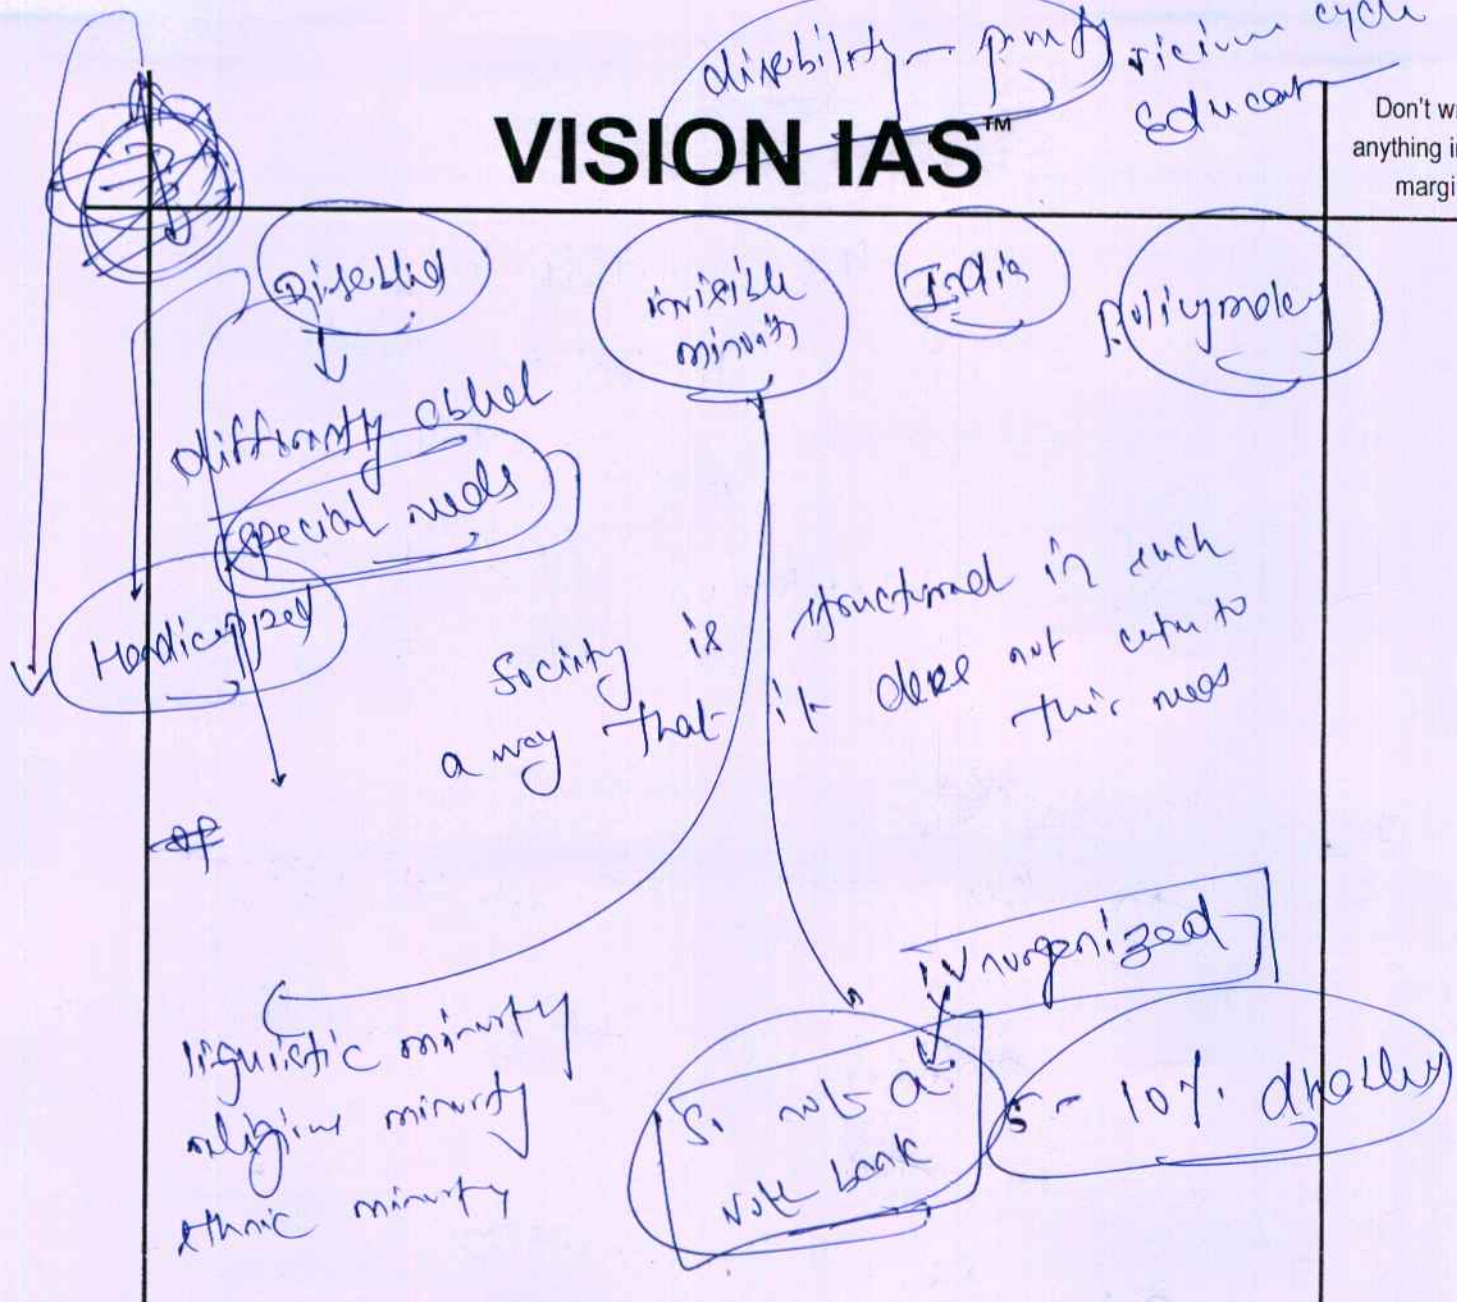 disability - poverty vicious cycle
Educat
VISION IAS™
Don't w
anything i
margi
Disabled
invisible
minority
India
policymaker
differently abled
special needs
Handicapped
Society is structured in such
a way that it does not cater to
their needs
unorganized
linguistic minority
religious minority
ethnic minority
So not a
vote bank
5 - 10% disabled